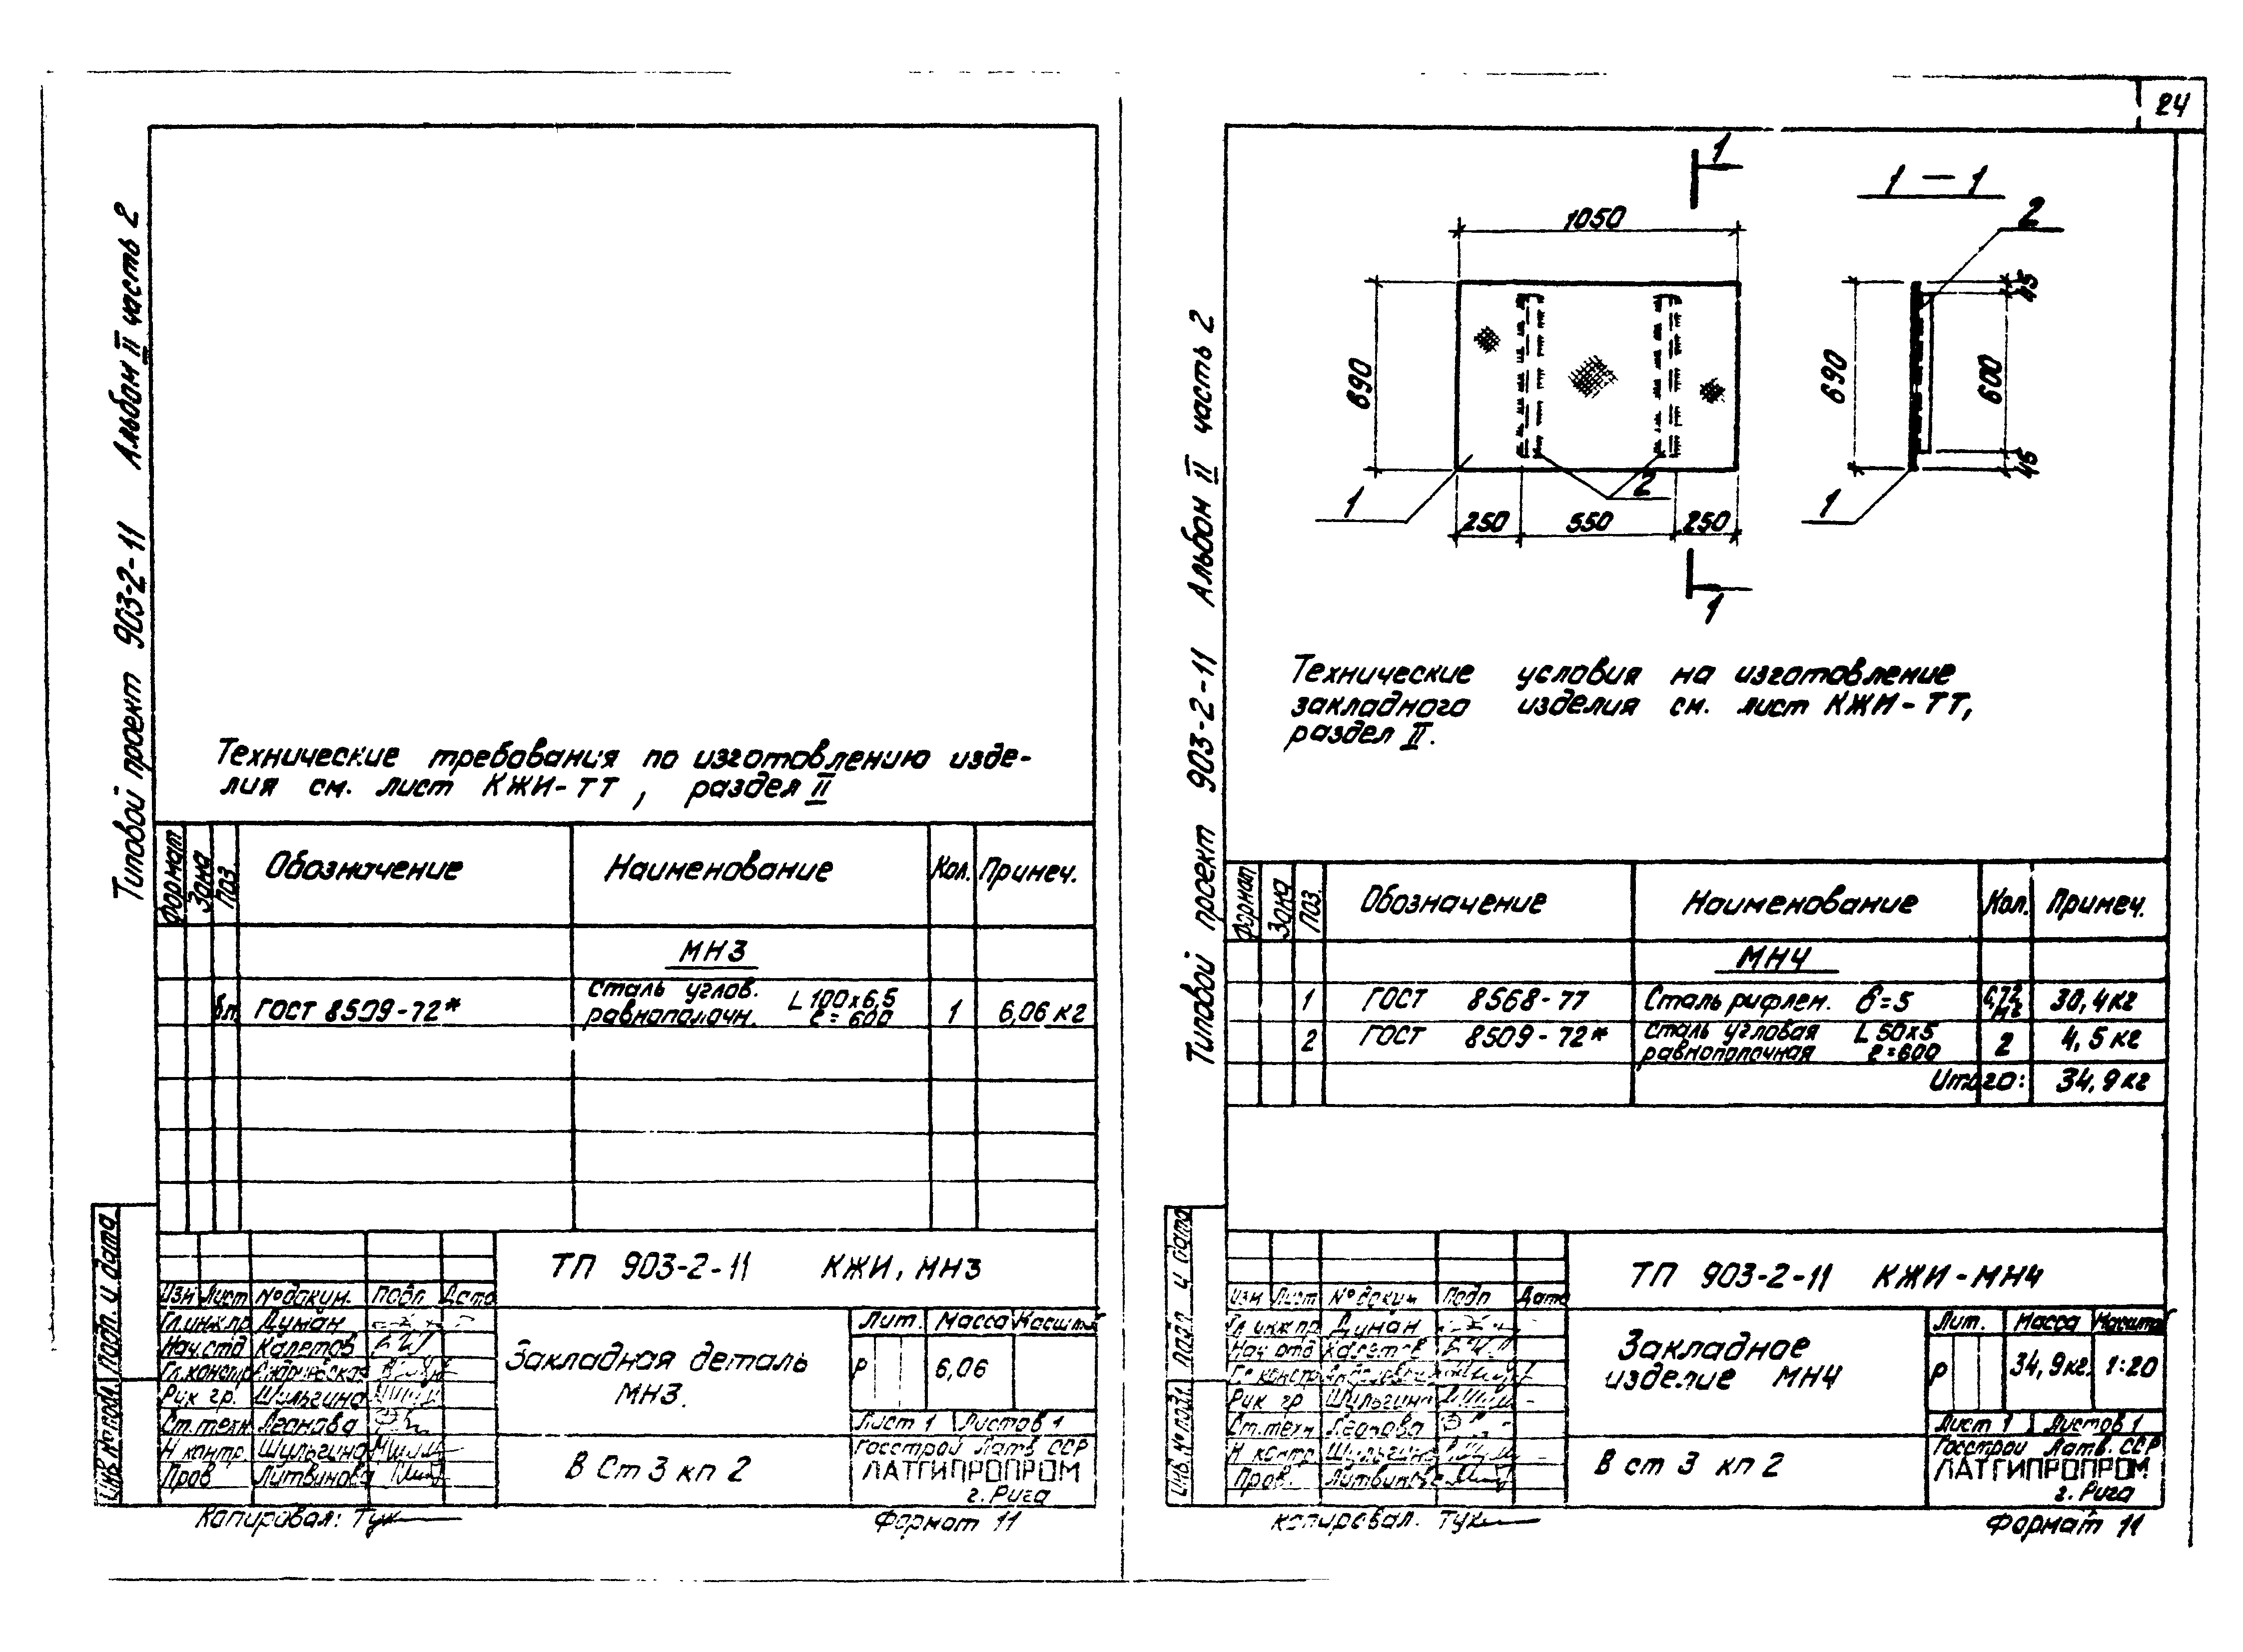 24
Типовой проект 903-2-11 Альбом II часть 2
Технические требования по изготовлению изде-
лия см. лист КЖИ-ТТ, раздел II
Формат Зона Поз. Обозначение Наименование Кол. Примеч.
МН3
б.п. ГОСТ 8509-72* Сталь углов. равнополочн. L 100x6,5 ℓ=600 1 6,06 кг
ТП 903-2-11 КЖИ, МН3
Изм Лист № докум. Подп Дата
Гл.инж.пр Думан
Нач.отд Калетов
Гл.констр
Рук гр. Шульгина
Ст.техн. Леонова
Н контр. Шульгина
Пров Литвинова
Закладная деталь
МН3.
Лит. Масса Масштаб
Р 6,06
Лист 1 Листов 1
В Ст 3 кп 2
Госстрой Латв ССР
ЛАТГИПРОПРОМ
г. Рига
Инв. № подл. Подп. и дата
Копировал: Тук
Формат 11
Типовой проект 903-2-11 Альбом II часть 2
1
1 – 1
1050
2
690
690
600
45
45
1
2
1
250 550 250
1
Технические условия на изготовление
закладного изделия см. лист КЖИ-ТТ,
раздел II.
Формат Зона Поз. Обозначение Наименование Кол. Примеч.
МН4
1 ГОСТ 8568-77 Сталь рифлен. δ=5 0,72 м2 30,4кг
2 ГОСТ 8509-72* Сталь угловая равнополочная L 50x5 ℓ=600 2 4,5 кг
Итого: 34,9 кг
ТП 903-2-11 КЖИ-МН4
Изм Лист № докум Подп Дата
Гл инж пр Думан
Нач отд Калетов
Гл констр
Рук гр Шульгина
Ст.техн Леонова
Н контр Шульгина
Пров. Литвинова
Закладное
изделие МН4
Лит. Масса Масштаб
Р 34,9кг. 1:20
Лист 1 Листов 1
В ст 3 кп 2
Госстрой Латв. ССР
ЛАТГИПРОПРОМ
г. Рига
Инв. № подл. Подп и дата
Копировал. Тук
Формат 11